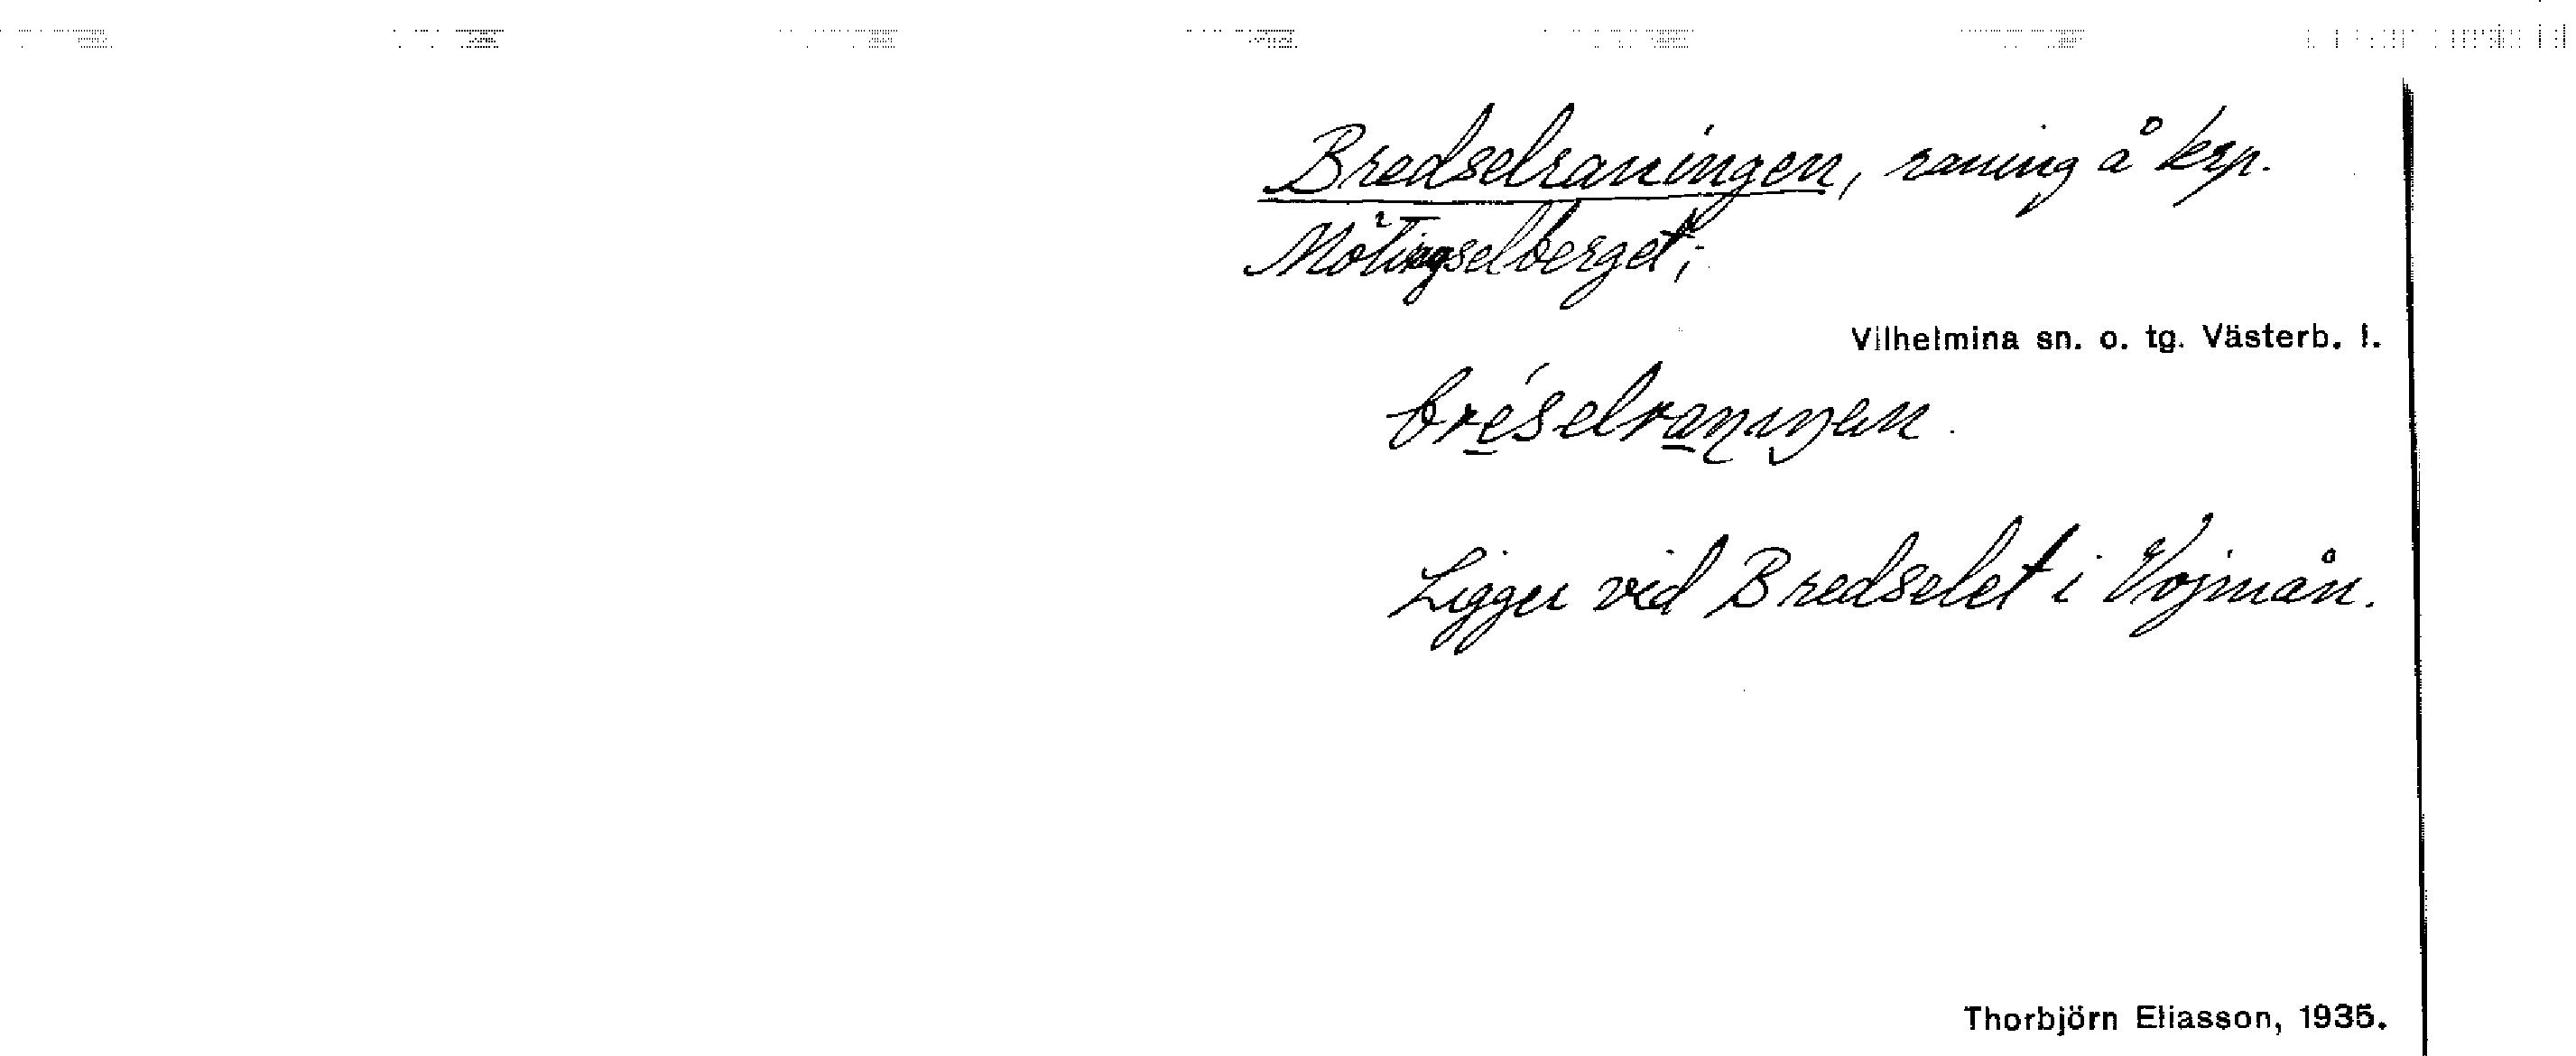 Bredselraningen, raning å krp.
Mötingselberget;
Vilhelmina sn. o. tg. Västerb. l.
Ligger vid Bredselet i Vojmån.
Thorbjörn Eliasson, 1935.